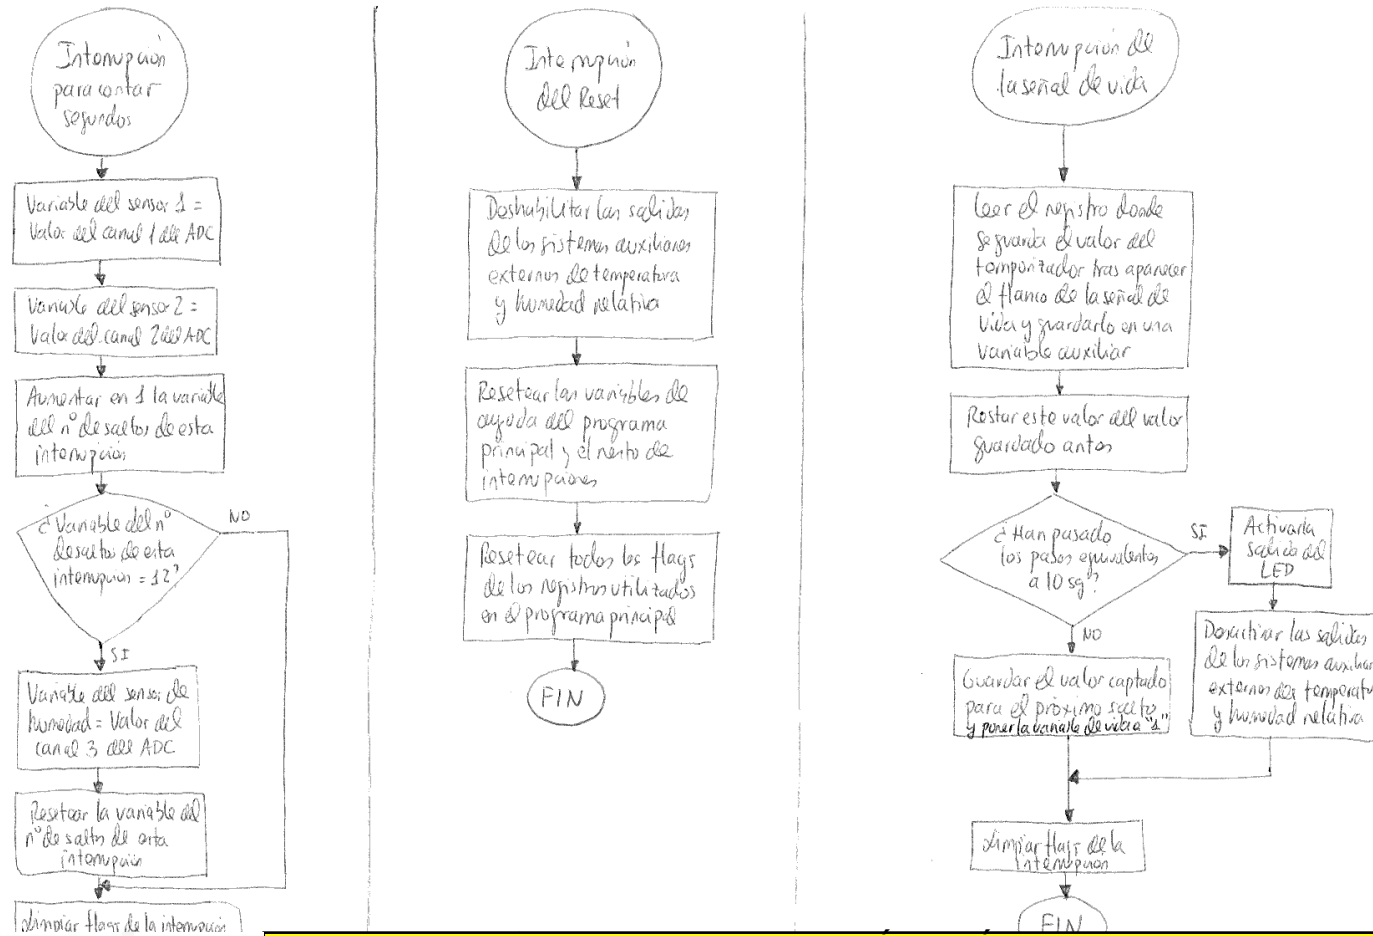 Interrupción
para contar
segundos
Variable del sensor 1 =
Valor del canal 1 del ADC
Variable del sensor 2 =
Valor del canal 2 del ADC
Aumentar en 1 la variable
del nº de saltos de esta
interrupción
¿Variable del nº
de saltos de esta
interrupción = 12?
NO
SI
Variable del sensor de
humedad = Valor del
canal 3 del ADC
Resetear la variable del
nº de saltos de esta
interrupción
Limpiar flags de la interrupción
Interrupción
del Reset
Deshabilitar las salidas
de los sistemas auxiliares
externos de temperatura
y humedad relativa
Resetear las variables de
ayuda del programa
principal y el resto de
interrupciones
Resetear todos los flags
de los registros utilizados
en el programa principal
FIN
Interrupción de
la señal de vida
Leer el registro donde
se guarda el valor del
temporizador tras aparecer
el flanco de la señal de
vida y guardarlo en una
variable auxiliar
Restar este valor del valor
guardado antes
¿Han pasado
los pasos equivalentes
a 10 sg?
SI
Activar la
salida del
LED
NO
Desactivar las salidas
de los sistemas auxiliar
externos de temperatu
y humedad relativa
Guardar el valor captado
para el próximo salto
y poner la variable de vida a "1"
Limpiar flags de la
interrupción
FIN